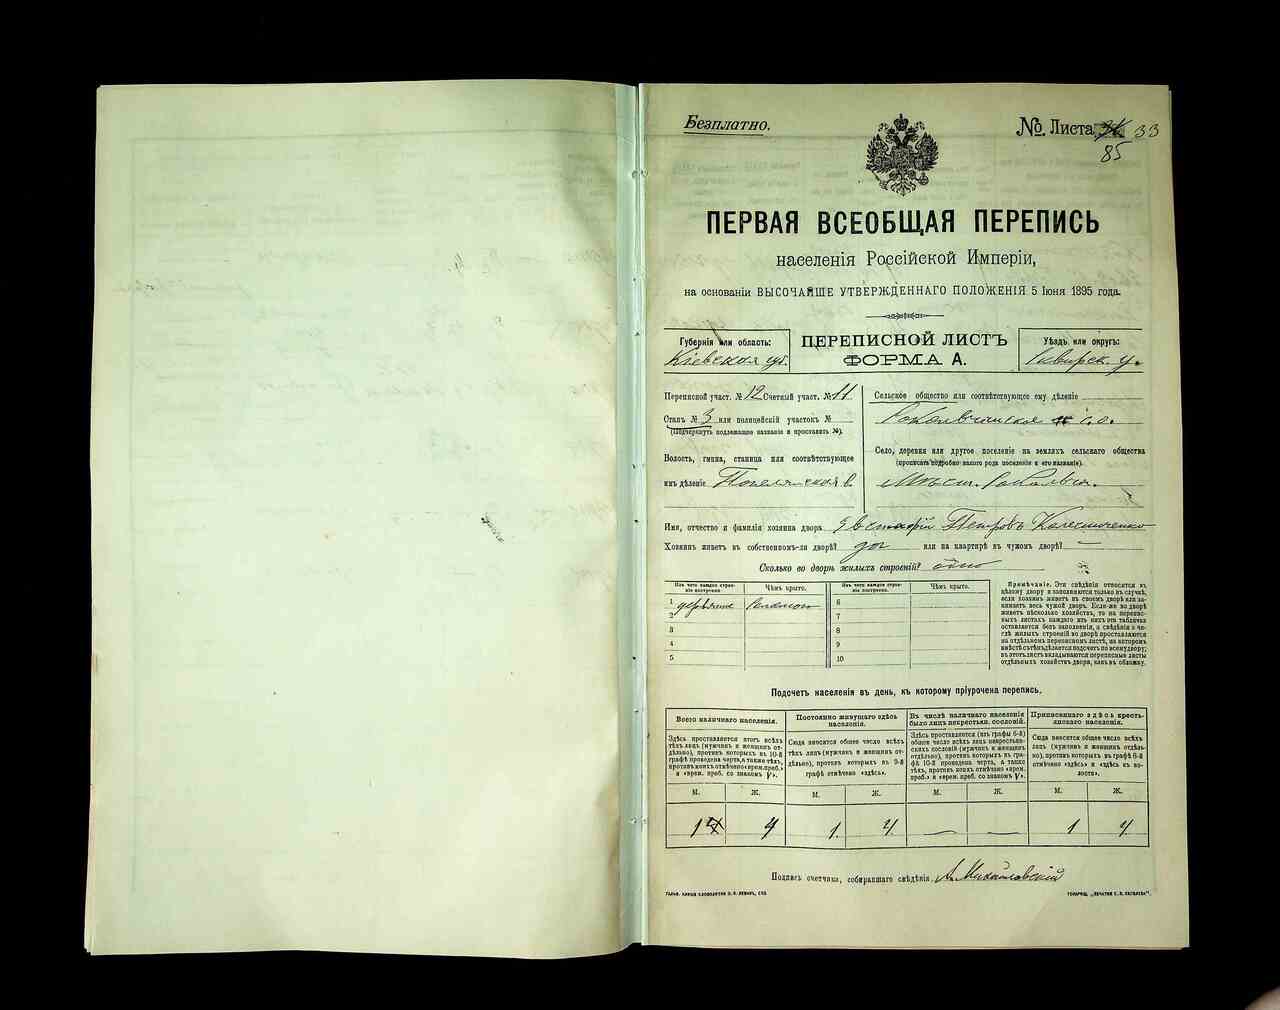 Безплатно.
№ Листа 33
85
ПЕРВАЯ ВСЕОБЩАЯ ПЕРЕПИСЬ
населенія Россійской Имперіи,
на основаніи ВЫСОЧАЙШЕ УТВЕРЖДЕННАГО ПОЛОЖЕНІЯ 5 Іюня 1895 года.
Губернія или область:
Кіевская губ.
ПЕРЕПИСНОЙ ЛИСТЪ
ФОРМА А.
Уѣздъ или округъ:
Сквирск. у.
Переписной участ. № 12 Счетный участ. № 11
Станъ № 3 или полицейскій участокъ №
(Подчеркнуть подлежащее названіе и проставить №).
Волость, гмина, станица или соотвѣтствующее
имъ дѣленіе
Сельское общество или соотвѣтствующее ему дѣленіе
с. о.
Село, деревня или другое поселеніе на земляхъ сельскаго общества
(прописать подробно какого рода поселеніе и его названіе).
Мѣст.
Имя, отчество и фамилія хозяина двора Евстафій Петровъ Колесниченко
Хозяинъ живетъ въ собственномъ-ли дворѣ? да или на квартирѣ въ чужомъ дворѣ? —
Сколько во дворѣ жилыхъ строеній? одно
Изъ чего каждое строеніе построено. Чѣмъ крыто. Изъ чего каждое строеніе построено. Чѣмъ крыто.
1 соломою 6
2 7
3 8
4 9
5 10
Примѣчаніе. Эти свѣдѣнія относятся къ
цѣлому двору и заполняются только въ случаѣ,
если хозяинъ живетъ въ своемъ дворѣ или за-
нимаетъ весь чужой дворъ. Если-же во дворѣ
живетъ нѣсколько хозяйствъ, то на перепис-
ныхъ листахъ каждаго изъ нихъ эти таблички
оставляются безъ заполненія, а свѣдѣнія о чи-
слѣ жилыхъ строеній во дворѣ проставляются
на отдѣльномъ переписномъ листѣ, на которомъ
вмѣстѣ съ тѣмъ дѣлается подсчетъ по всему двору;
въ этотъ листъ вкладываются переписные листы
отдѣльныхъ хозяйствъ двора, какъ въ обложку.
Подсчетъ населенія въ день, къ которому пріурочена перепись.
Всего наличнаго населенія.
Здѣсь проставляется итогъ всѣхъ
тѣхъ лицъ (мужчинъ и женщинъ от-
дѣльно), противъ которыхъ въ 10-й
графѣ проведена черта, а также тѣхъ,
противъ коихъ отмѣчено «врем. преб.»
и «врем. преб. со знакомъ V».
Постоянно живущаго здѣсь
населенія.
Сюда вносится общее число всѣхъ
тѣхъ лицъ (мужчинъ и женщинъ от-
дѣльно), противъ которыхъ въ 9-й
графѣ отмѣчено «здѣсь».
Въ числѣ наличнаго населенія
было лицъ некрестьян. сословій.
Здѣсь проставляется (изъ графы 6-й)
общее число всѣхъ лицъ некрестьян-
скихъ сословій (мужчинъ и женщинъ
отдѣльно), противъ которыхъ въ гра-
фѣ 10-й проведена черта, а также
тѣхъ, противъ коихъ отмѣчено «врем.
преб.» и «врем. преб. со знакомъ V».
Приписаннаго здѣсь кресть-
янскаго населенія.
Сюда вносится общее число всѣхъ
лицъ (мужчинъ и женщинъ отдѣль-
но), противъ которыхъ въ графѣ 8-й
отмѣчено «здѣсь» и «здѣсь въ во-
лости».
М. Ж. М. Ж. М. Ж. М. Ж.
1 4 1. 4. — — 1 4.
Подпись счетчика, собиравшаго свѣдѣнія А. Михайловскій